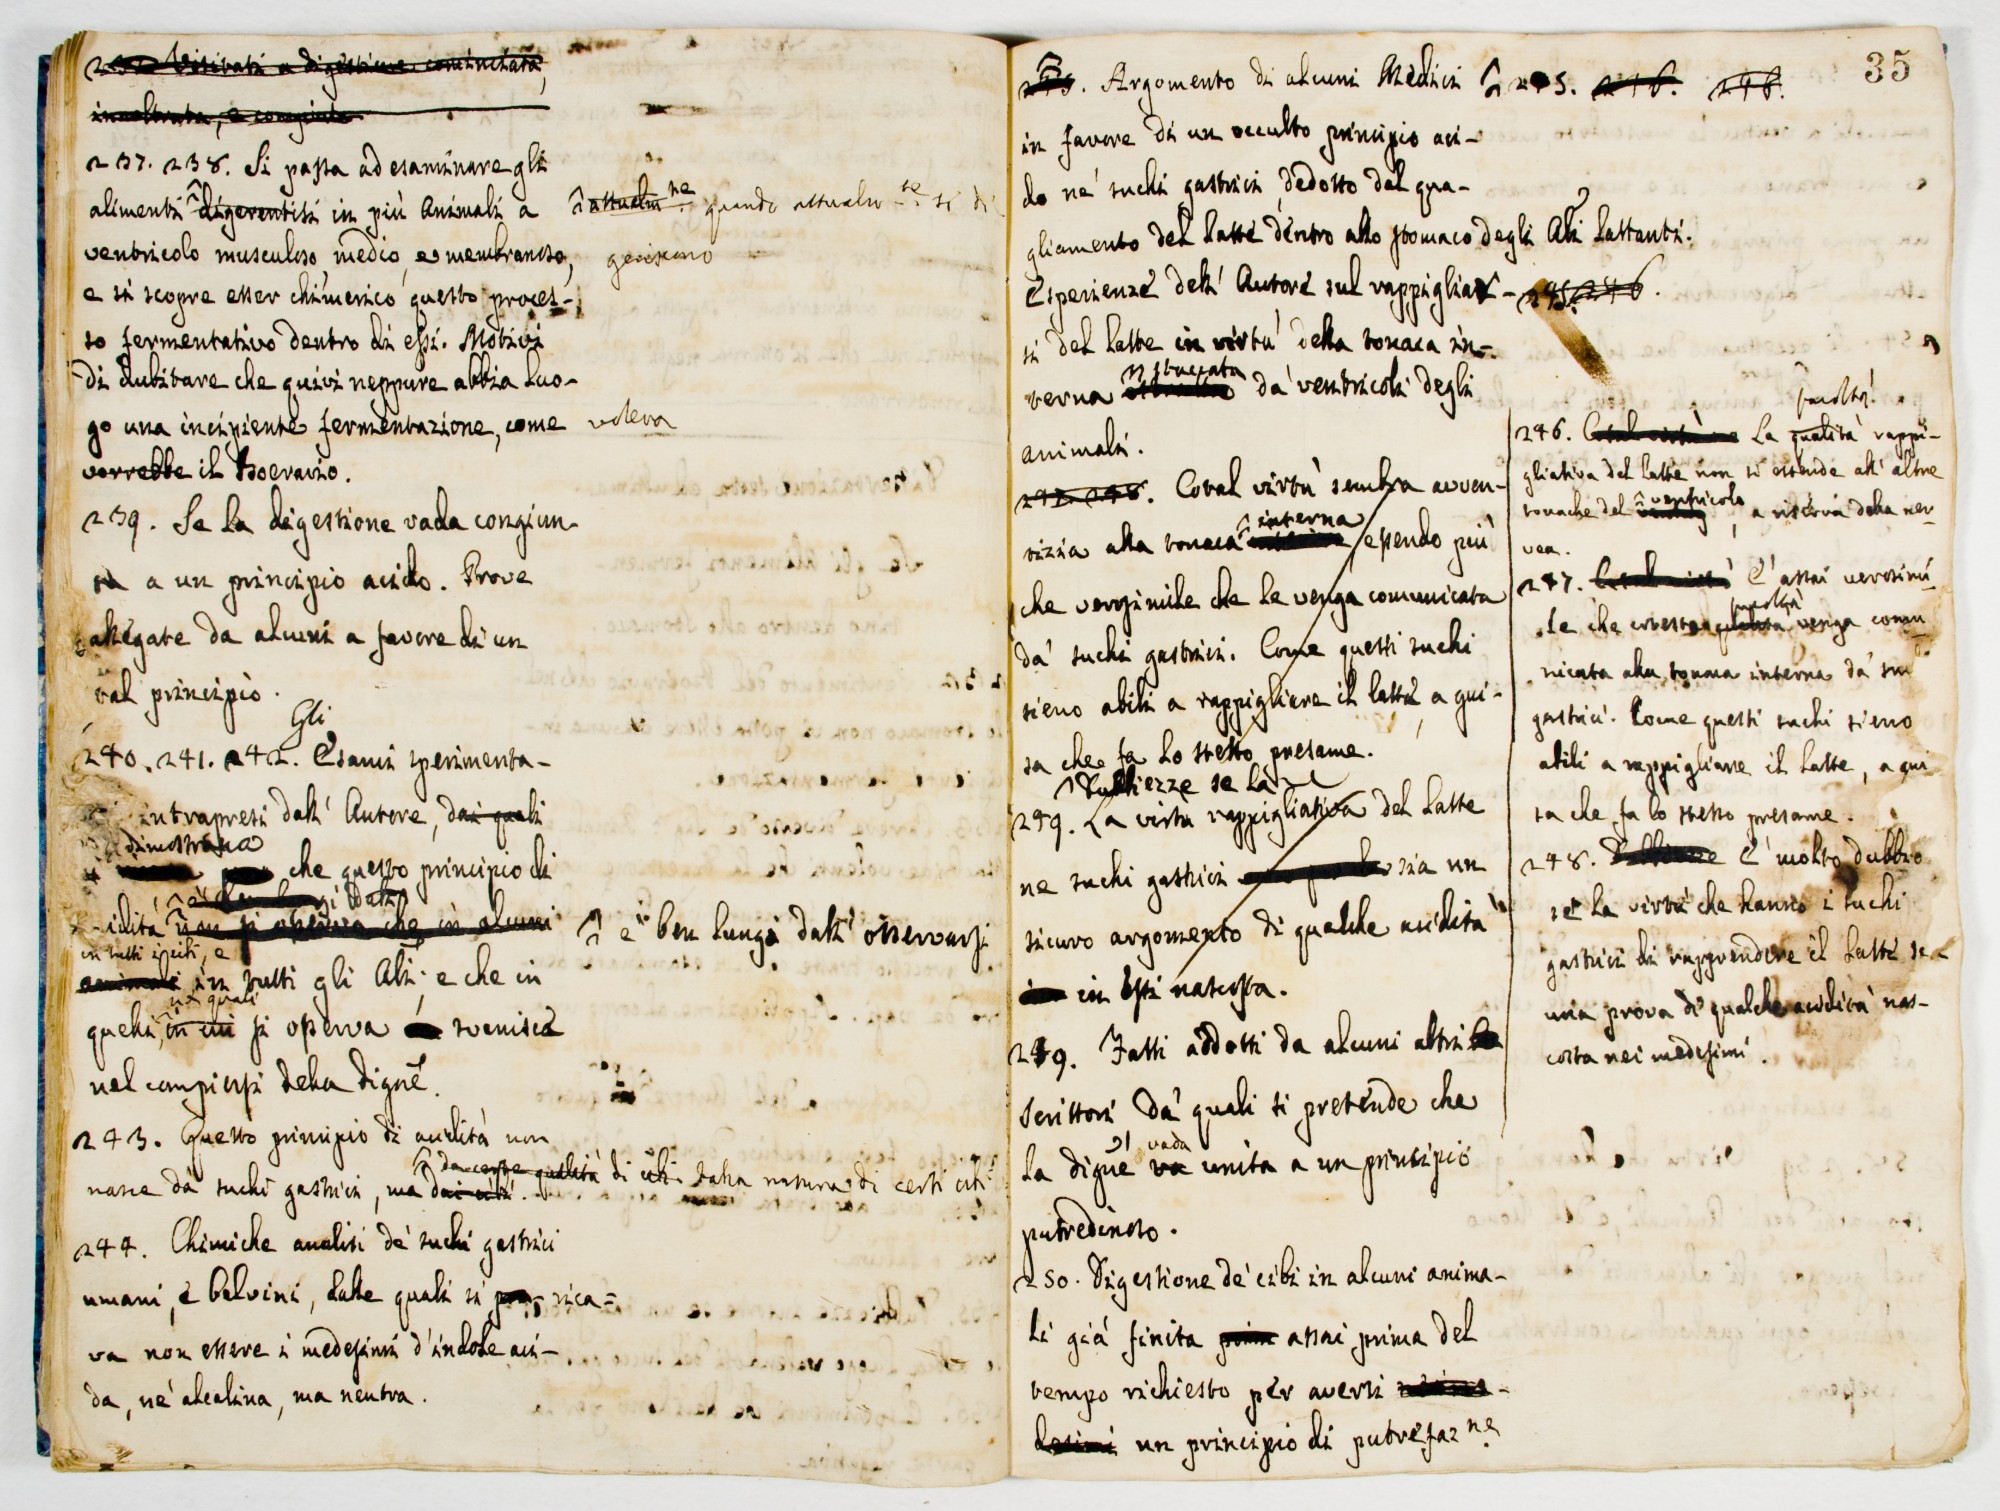 237. 238. Si passa ad esaminare gli
alimenti digerentisi in più Animali a
ventricolo musculoso, medio, e membranoso,
e si scopre esser chimerico questo proces-
so fermentativo dentro di essi. Motivi
di dubitare che quivi neppure abbia luo-
go una incipiente fermentazione, come
vorrebbe il Boeravio.
239. Se la digestione vada congiun-
ta a un principio acido. Prove
allegate da alcuni a favore di un
tal principio.
Gli
240. 241. 242. Esami sperimenta-
intrapresi dall' Autore, dai quali
dimostrano
che questo principio di
-cidità non si osserva che in alcuni
in tutti i cibi, e
animali in tutti gli Ali; e che in
ne' quali
quelli, in cui si osserva svenisce
nel compiersi della digne.
243. Questo principio di acidità non
nasce da' suchi gastrici, ma dai cibi.
244. Chimiche analisi de' suchi gastrici
umani, e belvini, dalle quali si rica-
va non essere i medesimi d'indole aci-
da, nè alcalina, ma neutra.
attualm.ne quando attualm.te si di
geriscono
voleva
è ben lungi dall' osservarsi
da certe qualità di cibi dalla natura di certi cibi
35
Argomento di alcuni Medici
245. 246. 246.
in favore di un occulto principio aci-
do ne' suchi gastrici, dedotto dal qua-
gliamento del latte dentro allo stomaco degli Ali lattanti.
Esperienze dell' Autore sul rappigliar-
245. 246.
si del latte in virtù della tonaca in-
terna da' ventricoli degli
animali.
247. 248. Cotal virtù sembra avven-
interna
tizia alla tonaca essendo più
che verosimile che le venga comunicata
da' suchi gastrici. Come questi suchi
sieno abili a rappigliare il latte, a gui-
sa che fa lo stesso presame.
Dubbiezze se la
249. La virtù rappigliativa del latte
ne suchi gastrici sia un
sicuro argomento di qualche acidità
in essi nascosta.
249. Fatti addotti da alcuni altri
Scrittori da' quali si pretende che
vada
la digne va unita a un principio
putredinoso.
250. Digestione de' cibi in alcuni anima-
li già finita assai prima del
tempo richiesto per aversi
un principio di putrefaz.ne
facoltà
246. La qualità rappi-
gliativa del latte non si estende all' altre
ventricolo
tonache del , a riserva della ner-
vea.
247. E' assai verosimi-
facoltà
le che cotesta venga comu-
nicata alla tonaca interna da' suchi
gastrici. Come questi suchi sieno
abili a rappigliare il latte, a gui
sa che fa lo stesso presame.
248. E' molto dubbio
se la virtù che hanno i suchi
gastrici di rapprendere il latte sia
una prova di qualche acidità nas-
costa nei medesimi.